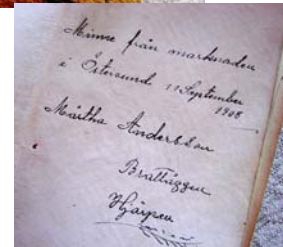 Minne från marknaden
i Östersund 11 September
1908
Märtha Andersson
Brattäggen
Hjärpen